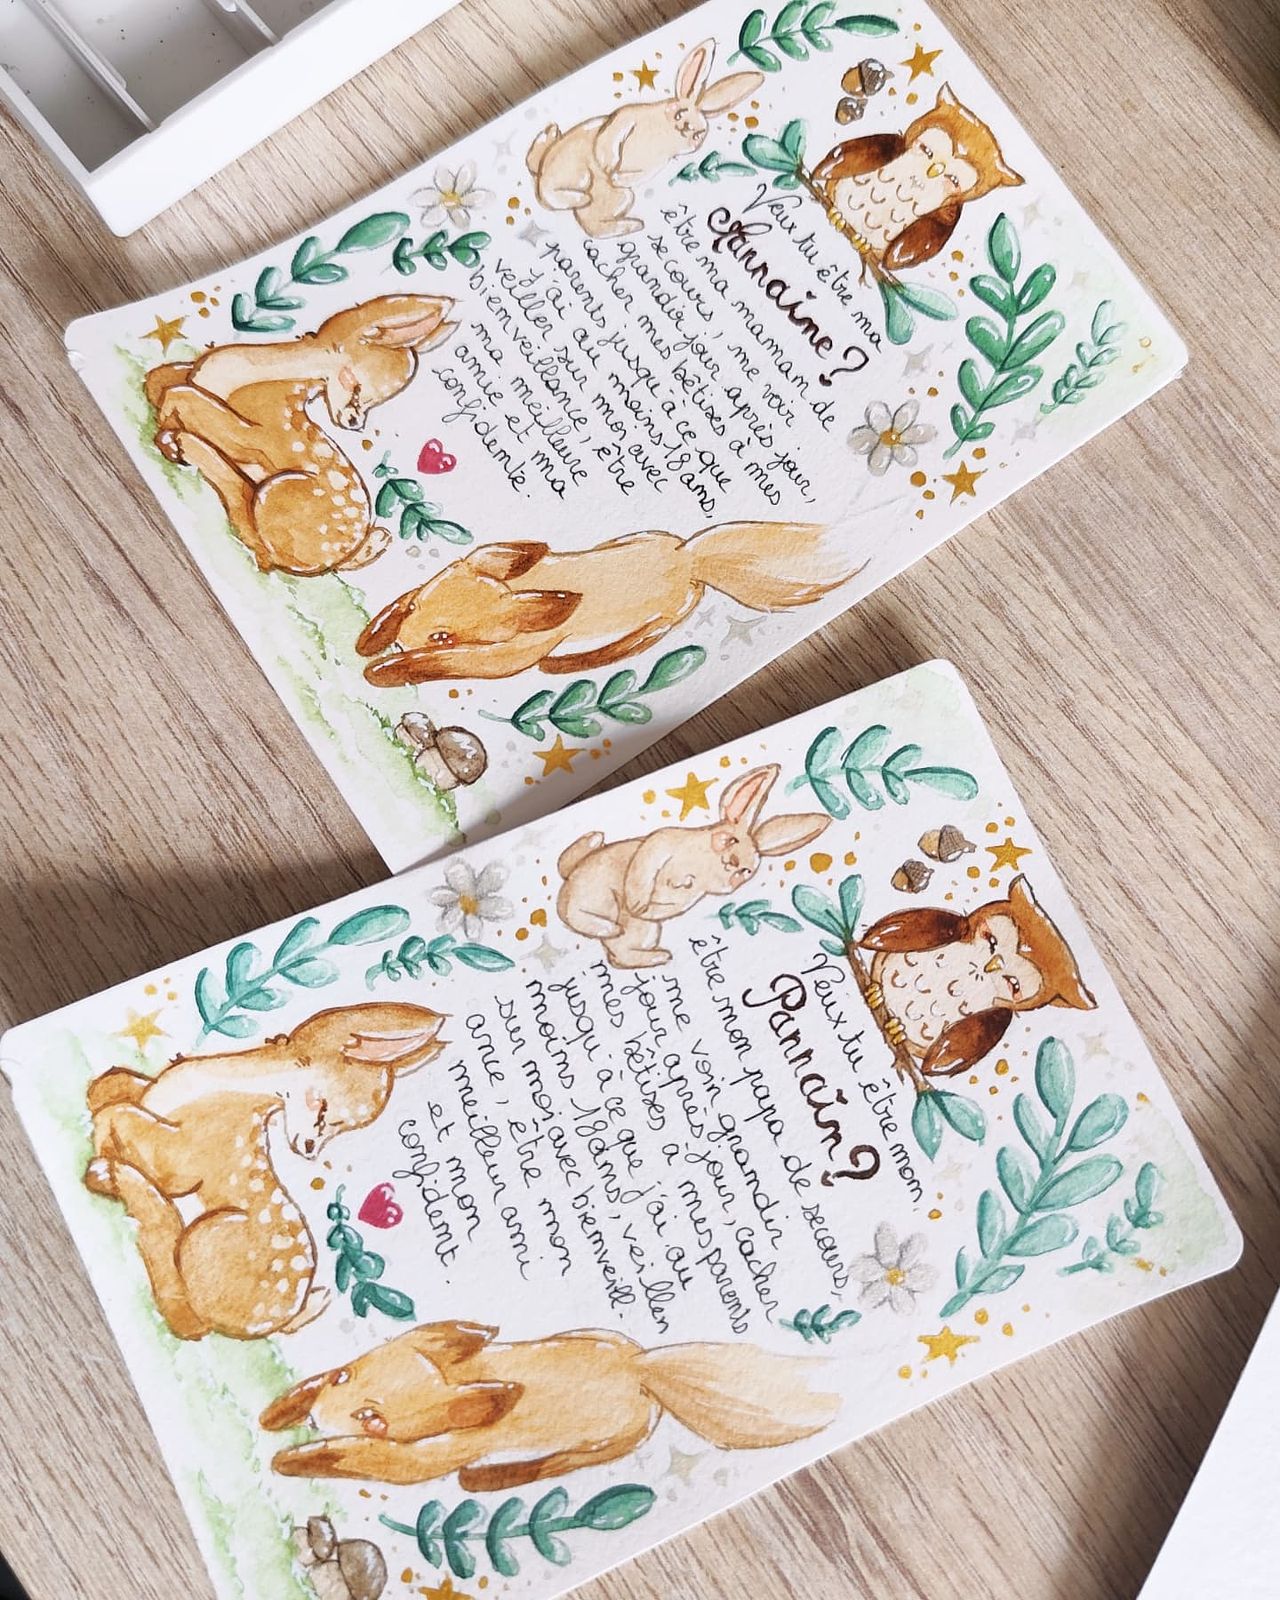 Veux tu être ma
Marraine ?
être ma maman de
secours, me voir
grandir jour après jour,
cacher mes bêtises à mes
parents jusqu'à ce que
j'ai au moins 18 ans,
veiller sur moi avec
bienveillance, être
ma meilleure
amie et ma
confidente.
Veux tu être mon
Parrain ?
être mon papa de secours,
me voir grandir
jour après jour, cacher
mes bêtises à mes parents
jusqu'à ce que j'ai au
moins 18 ans, veiller
sur moi avec bienveill-
ance, être mon
meilleur ami
et mon
confident.